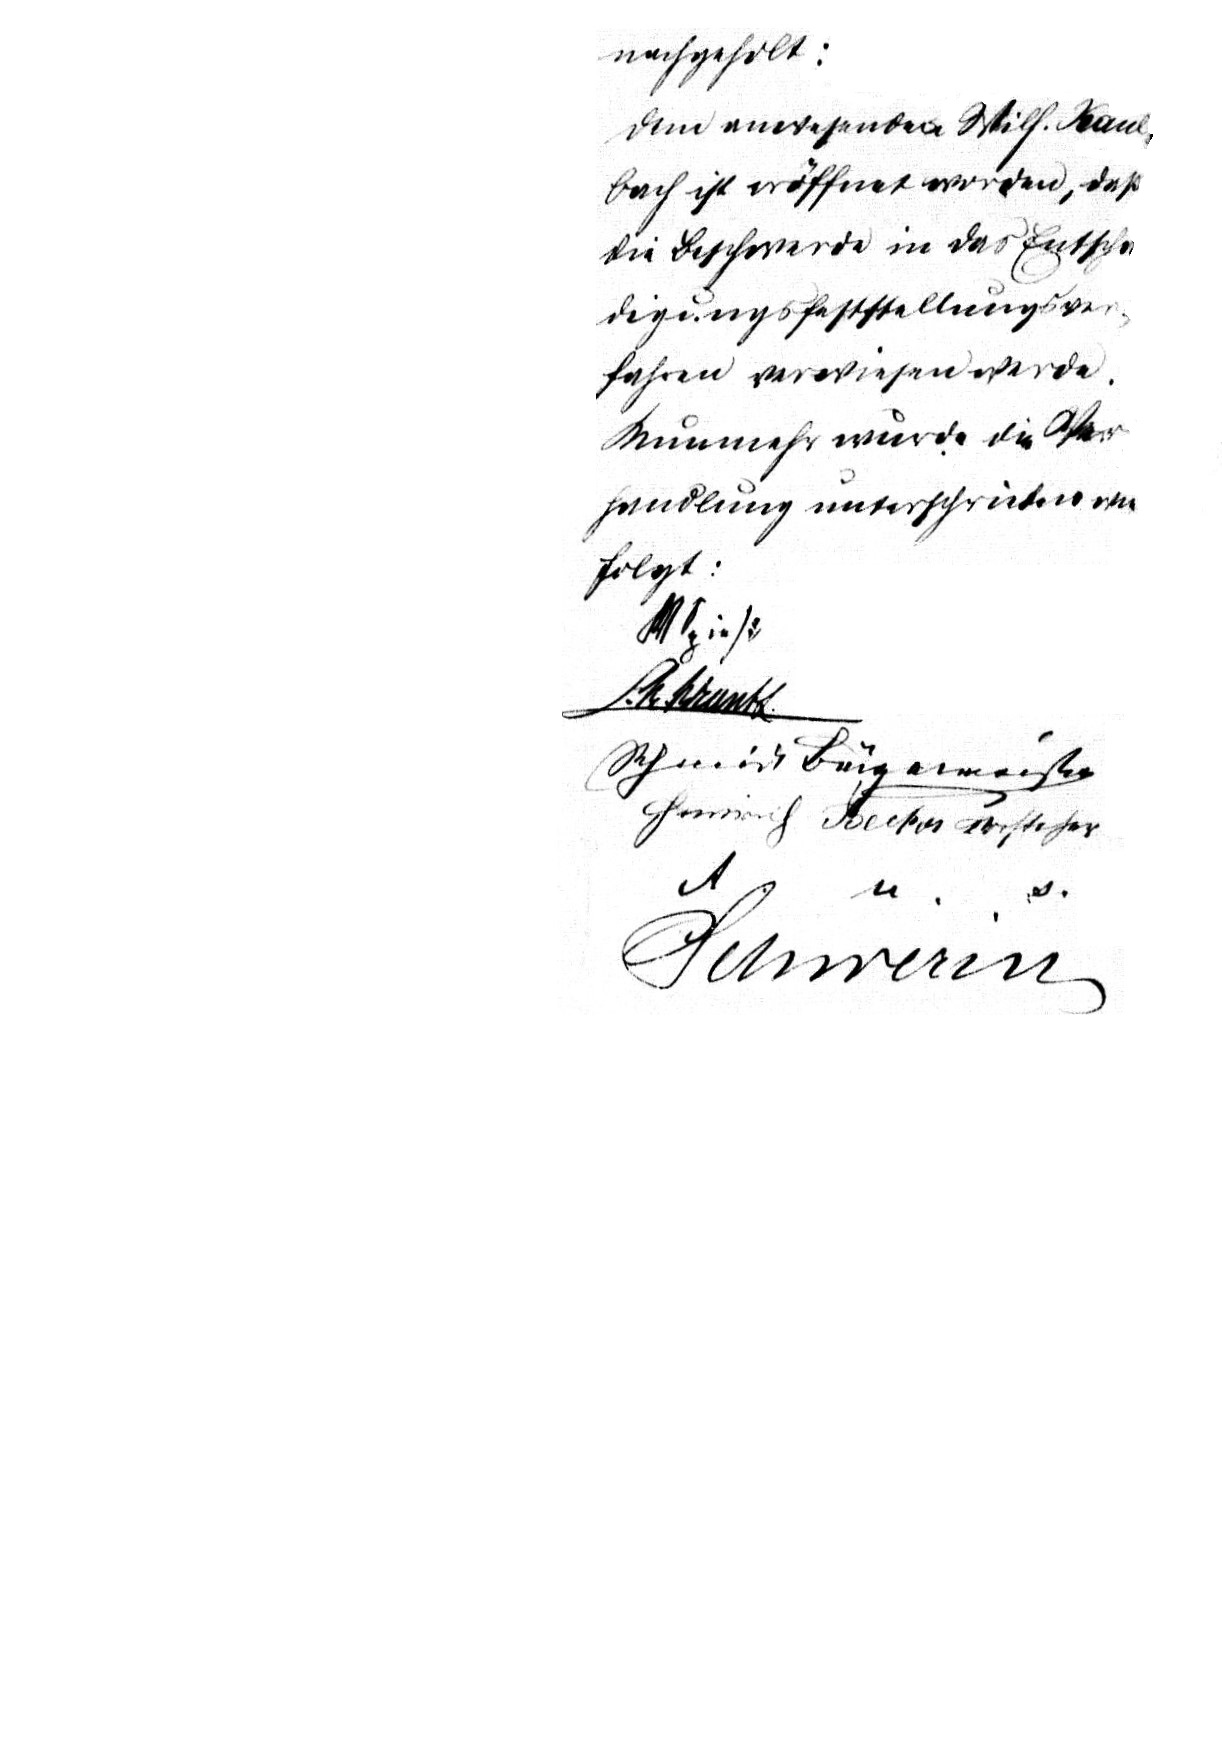 nachgeholt:
dem anwesenden Wilh. Kaul,
bach ist eröffnet worden, daß
die Beschwerde in das Entschä
digungsfeststellungsver,
fahren verwiesen werde.
Nunmehr wurde die Ver
handlung unterschrieben wie
folgt:
Schmidt Bürgermeister
Heinrich Becker Vorsteher
A. u. s.
Schwerin